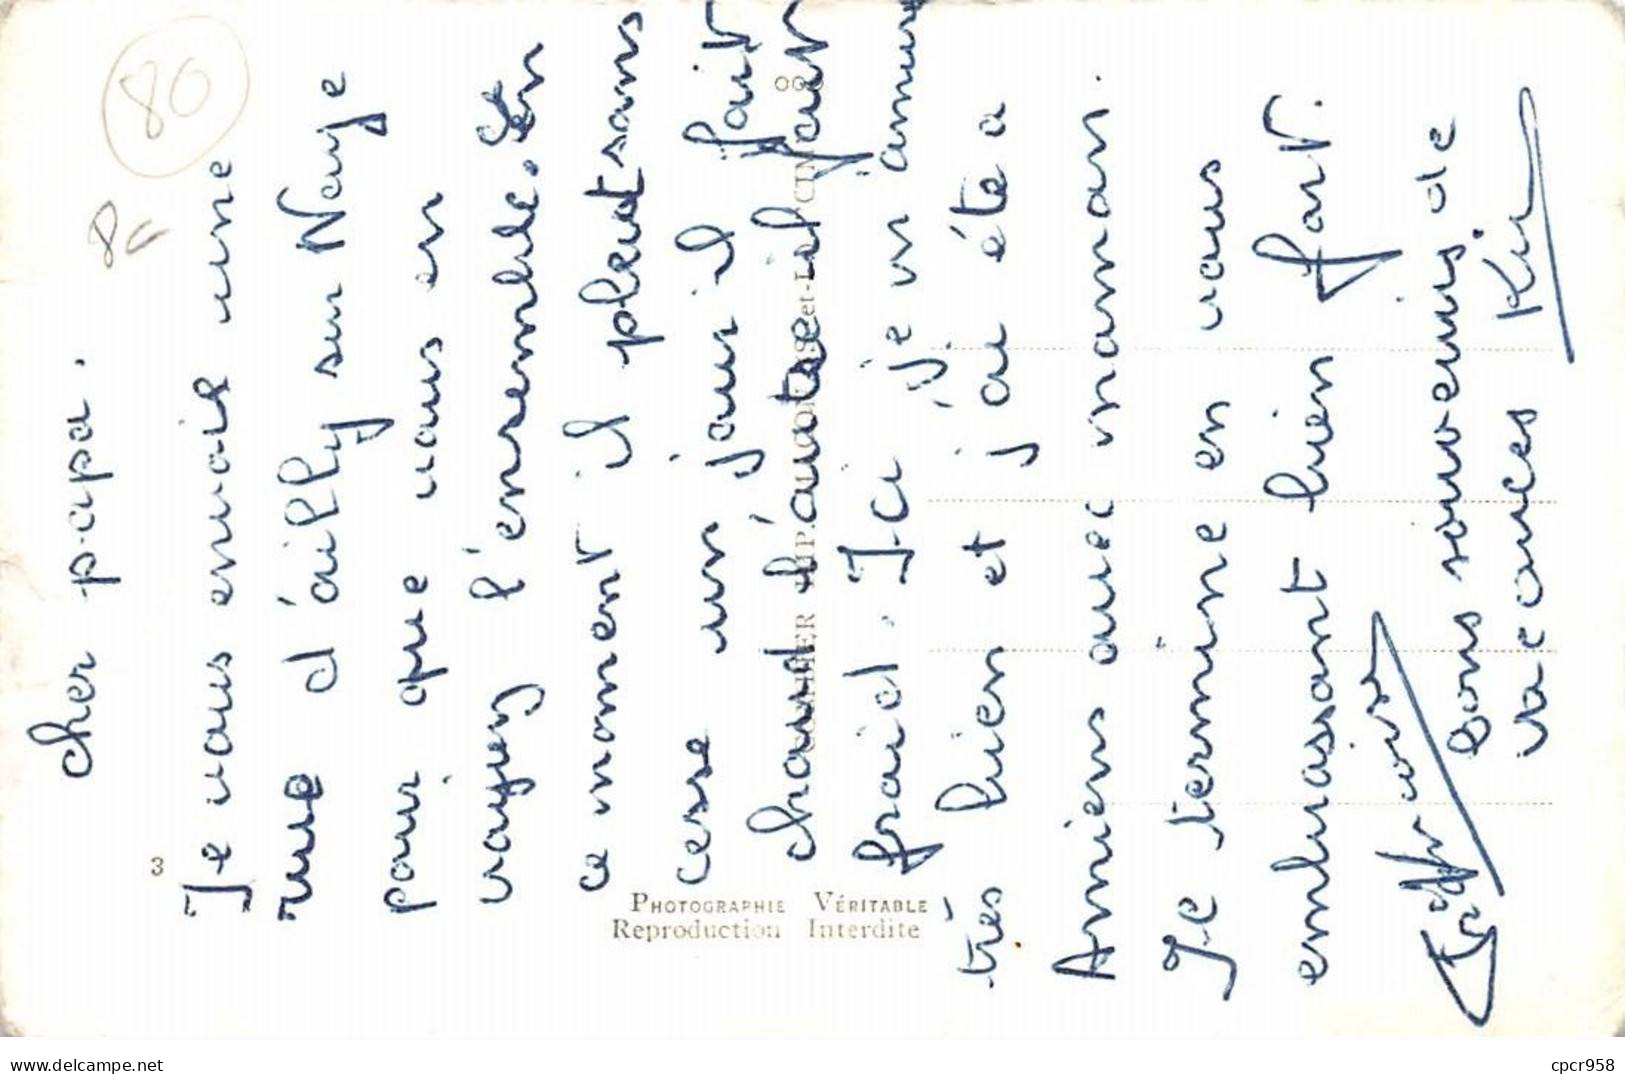 cher papa.
Je vous envoie une
vue d'ailly sur Noye
pour que vous en
voyez l'ensemble. En
ce moment il pleut sans
cesse un jour il fait
chaud l'autre il fait
froid. Ici je m'amuse
très bien et j'ai été a
Amiens avec maman.
Je termine en vous
embrassant bien fort.
bons souvenirs de
vacances
80
3
PHOTOGRAPHIE VÉRITABLE
Reproduction Interdite
cpcr958